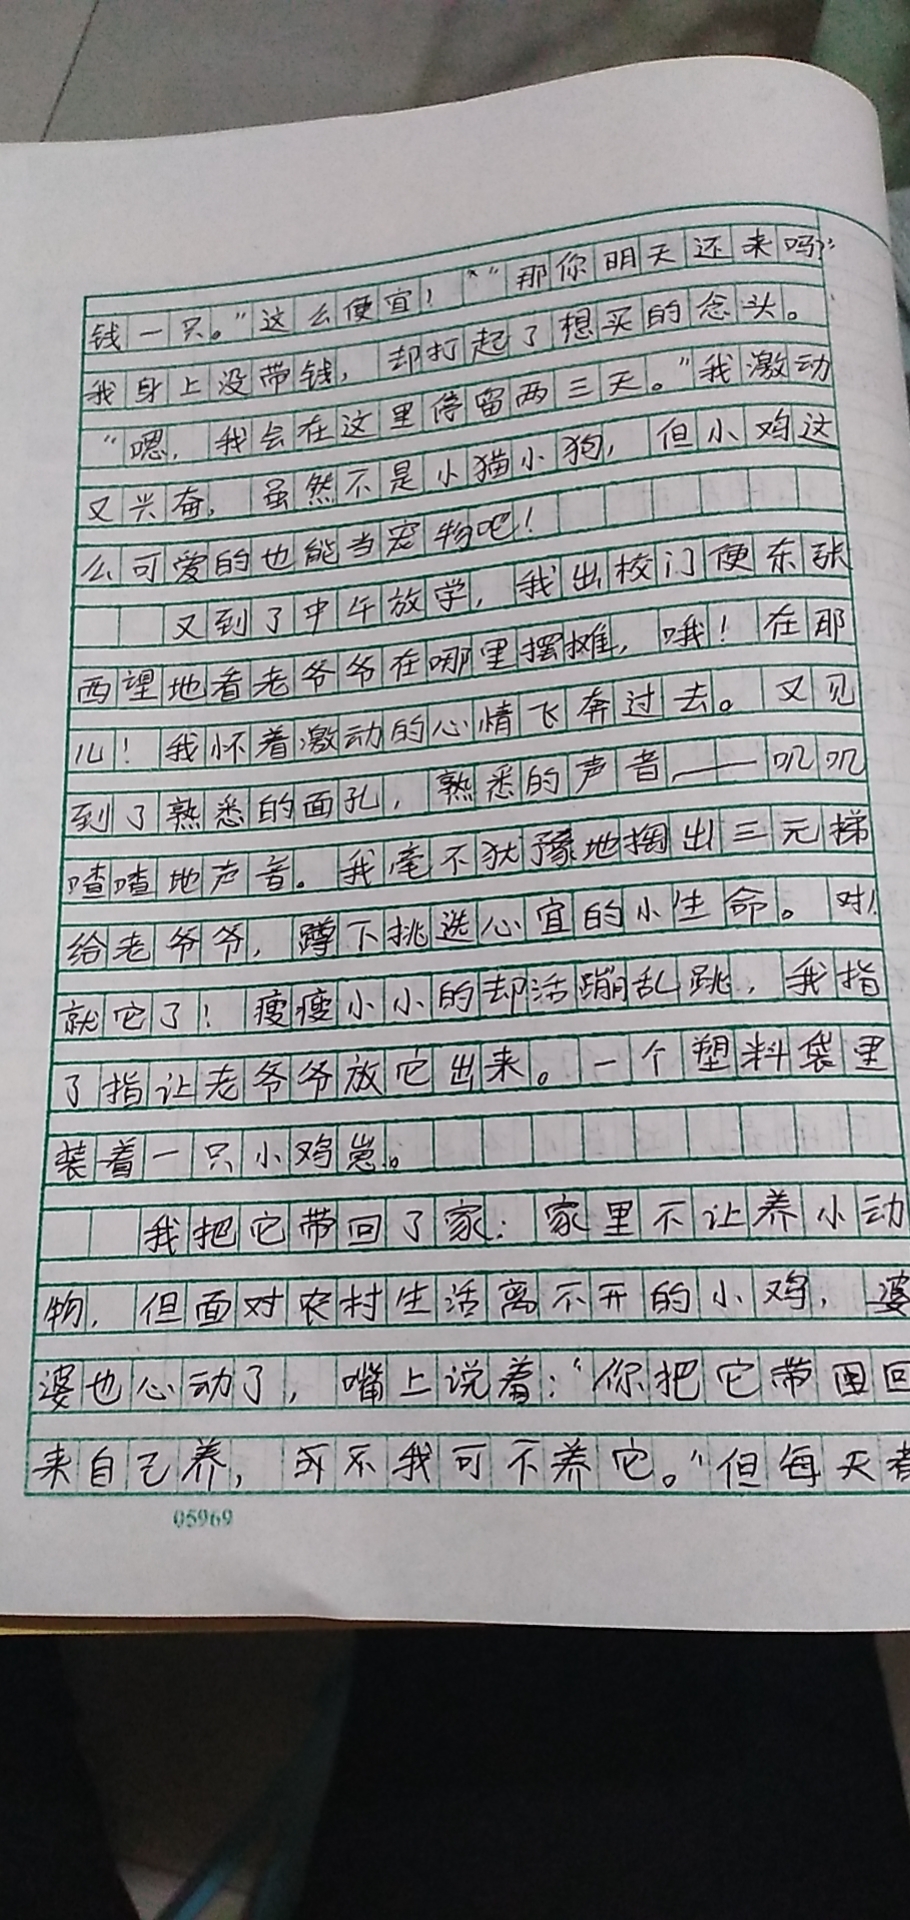 钱一只。"这么便宜！""那你明天还来吗？"
我身上没带钱，却打起了想买的念头。
"嗯，我会在这里停留两三天。"我激动
又兴奋，虽然不是小猫小狗，但小鸡这
么可爱的也能当宠物吧！
又到了中午放学，我出校门便东张
西望地看老爷爷在哪里摆摊，哦！在那
儿！我怀着激动的心情飞奔过去。又见
到了熟悉的面孔，熟悉的声音——叽叽
喳喳地声音。我毫不犹豫地掏出三元梯
给老爷爷，蹲下挑选心宜的小生命。对！
就它了！瘦瘦小小的却活蹦乱跳，我指
了指让老爷爷放它出来。一个塑料袋里
装着一只小鸡崽。
我把它带回了家：家里不让养小动
物，但面对农村生活离不开的小鸡，婆
婆也心动了，嘴上说着："你把它带回
来自己养，不我可不养它。"但每天看
05969